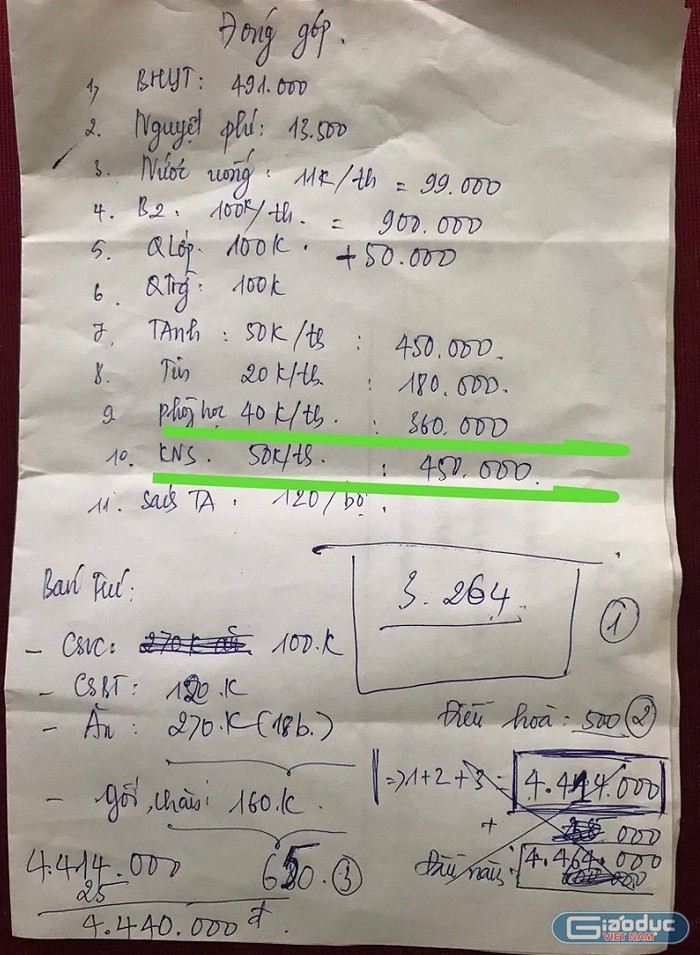 Đóng góp.
1, BHYT: 491.000
2. Nguyệt phí: 13.500
3. Nước uống: 11K/th = 99.000
4. B2. 100K/th. = 900.000
5. QLớp. 100K. +50.000
6 QTrg: 100K
7. TAnh: 50K/th : 450.000.
8. Tin 20K/th. : 180.000.
9 phòg học 40K/th. : 360.000
10. KNS. 50K/th. : 450.000.
11. Sách TA. 120/bộ.
3.264
1
Bán Trú:
- CSVC: 100.K
- CSBT: 120.K
- Ăn: 270.K (18b.)
Điều hoà: 500 2
- gối, chăn: 160.K.
650. 3
=> 1+2+3 = 4.414.000
+ 000
Đầu năm: 4.464.000
4.414.000
25
4.440.000đ.
Giáo dục
VIỆT NAM